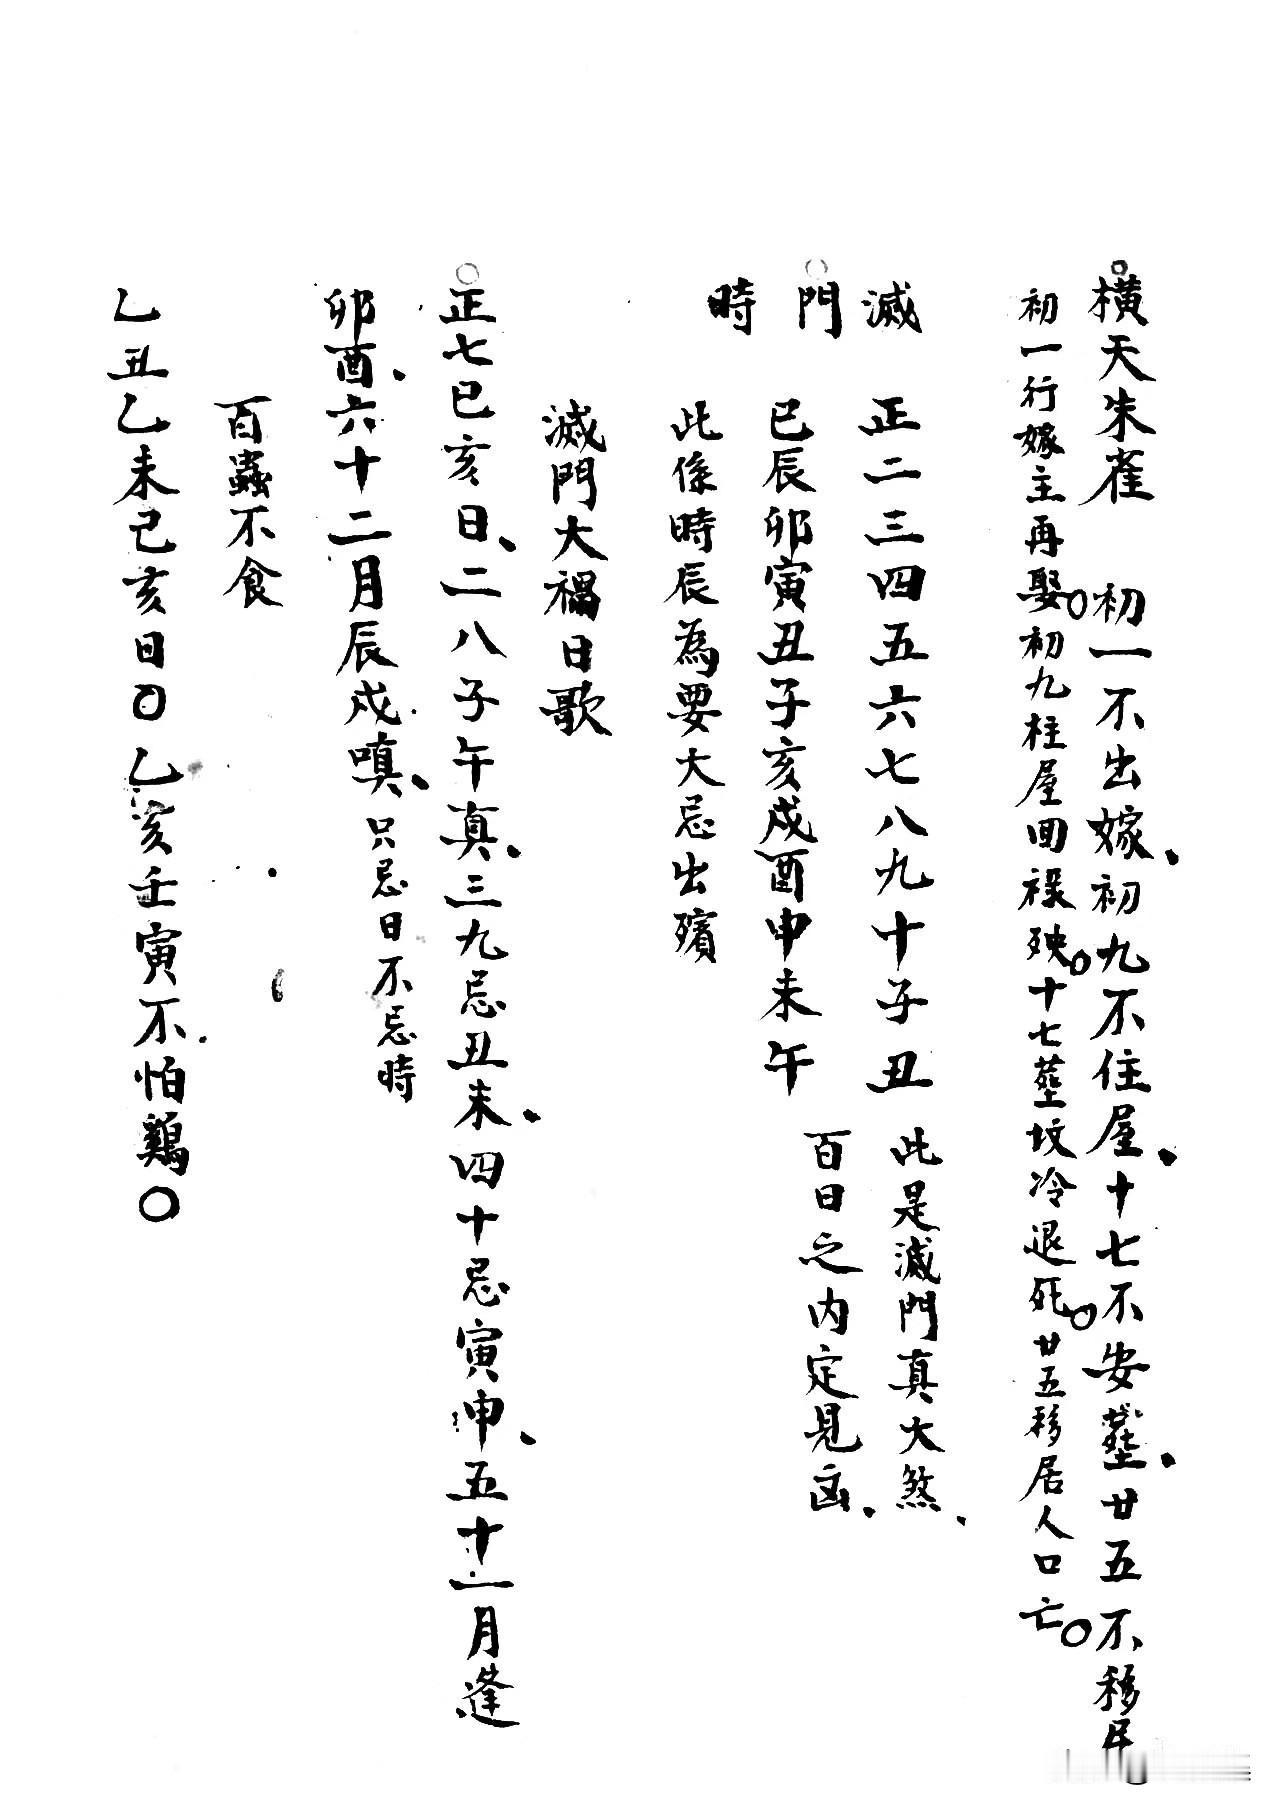 橫天朱雀　初一不出嫁、初九不住屋、十七不安塟、廿五不移居
初一行嫁主再娶○初九柱屋回祿殃○十七塟坟冷退死○廿五移居人口亡○
滅門時
正二三四五六七八九十子丑
巳辰卯寅丑子亥戍酉申未午
此是滅門真大煞、
百日之内定見凶、
此係時辰為要大忌出殯
滅門大禍日歌
正七巳亥日、二八子午真、三九忌丑未、四十忌寅申、五十一月逢
卯酉、六十二月辰戍嗔、只忌日不忌時
百蟲不食
乙丑乙未己亥日○乙亥壬寅不怕鷄○